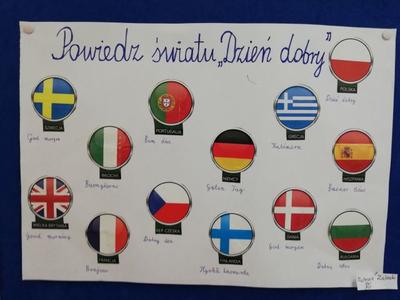 Powiedz światu „Dzień dobry"
POLSKA
Dzień dobry
SZWECJA
God morgon
PORTUGALIA
Bom dia
GRECJA
Kalimera
WŁOCHY
Buongiorno
NIEMCY
Guten Tag
HISZPANIA
Buenos días
WIELKA BRYTANIA
Good morning
REP. CZESKA
Dobrý den
DANIA
God morgen
FRANCJA
Bonjour
FINLANDIA
BUŁGARIA